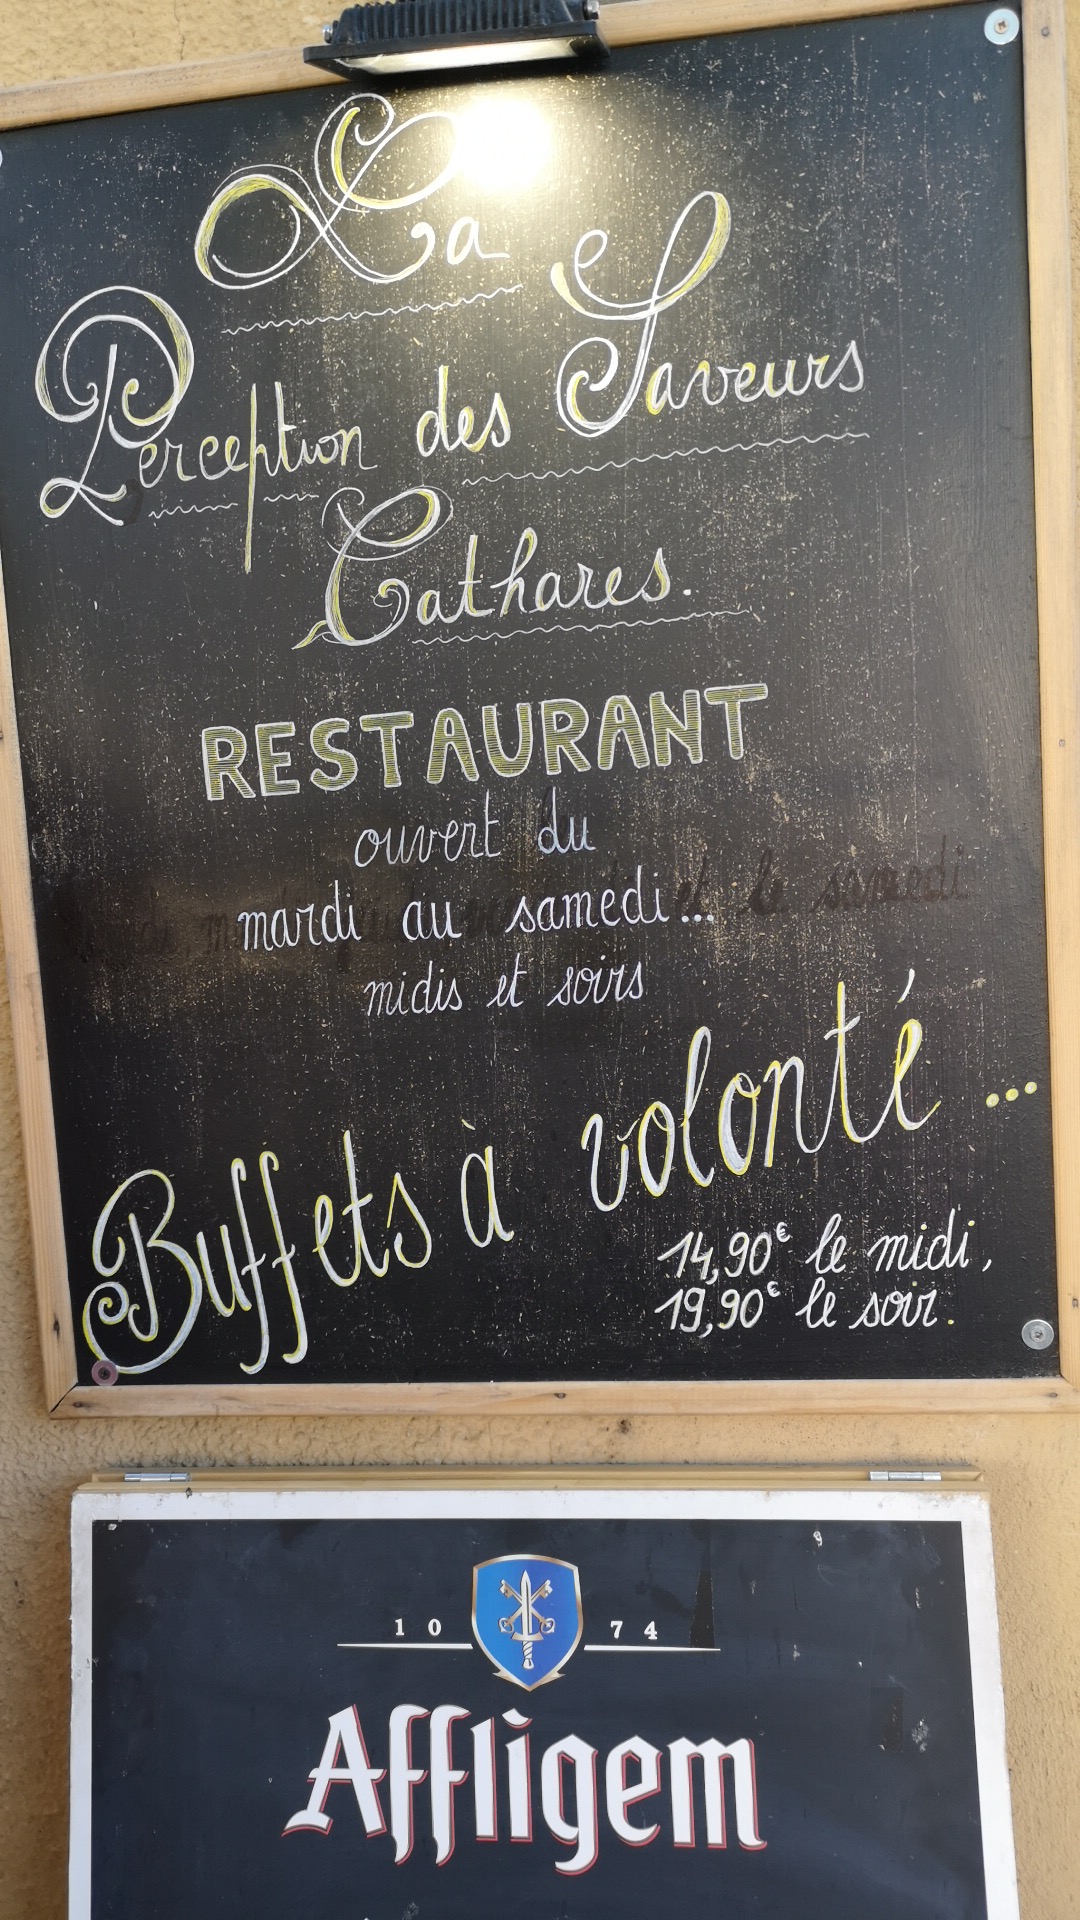 La
Perception des Saveurs
Cathares.
RESTAURANT
ouvert du
mardi au samedi...
midis et soirs
Buffets à volonté ...
14,90€ le midi,
19,90€ le soir.
1074
Affligem